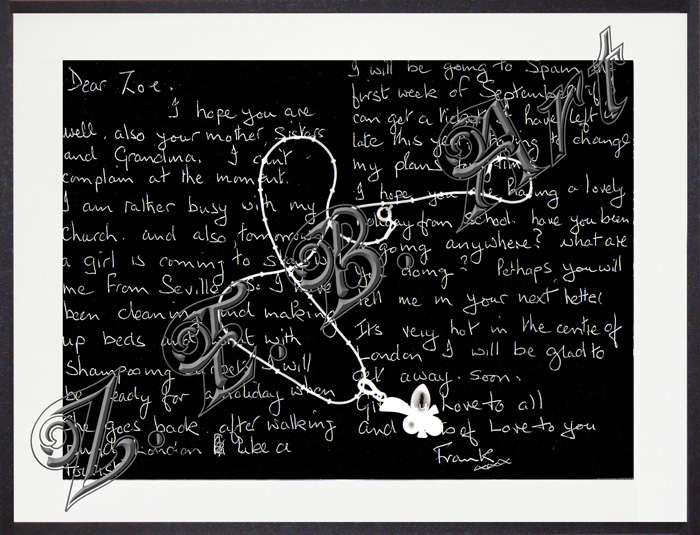 Dear Zoe,
I hope you are
well. also your mother Sisters
and Grandma. I can't
complain at the moment.
I am rather busy with my
Church. and also, tomorrow
a girl is coming to
me From Seville, so I have
been cleaning and making
up beds and with
Shampooing will
be ready for a holiday when
She goes back. after walking
London like a
Tourist
I will be going to Spain
first week of September if
can get a ticket. I have left
late this year having to change
my plans
I hope you having a lovely
holiday from School. have you been
going anywhere? what are
you doing? Perhaps you will
tell me in your next letter
Its very hot in the centre of
London I will be glad to
get away. soon.
Love to all
and of Love to you
Frank xx
Z.E.B. Art